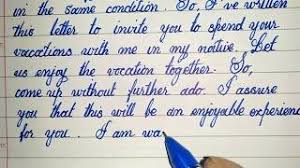 in the same condition. So, I've written
this letter to invite you to spend your
vacations with me in my native. Let
us enjoy the vacation together. So,
come up without further ado. I assure
you that this will be an enjoyable experience
for you. I am wa